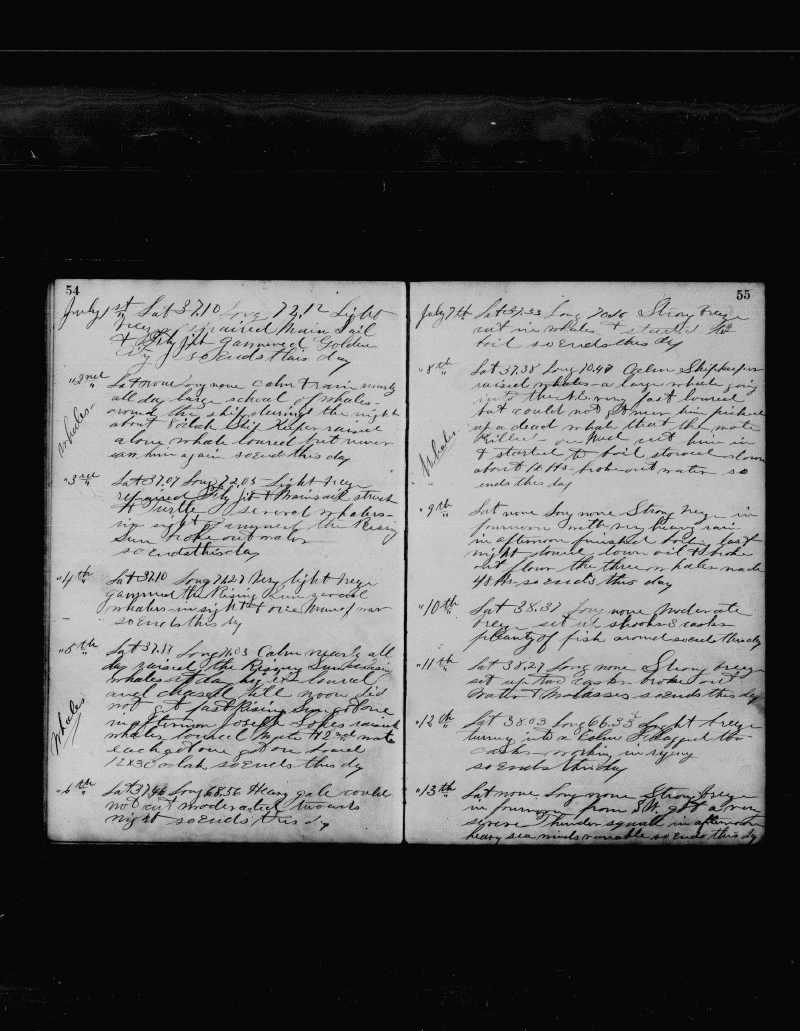 54
July 1st Lat 37.10 Long 72.12 Light
breeze repaired Main Sail
& Fly Jib gammed Golden
City so Ends this day
"2nd Lat none Long none Calm & rain nearly
all day large school of whales
around the ship during the night
about Ship Keeper raised
a lone whale loured but never
saw him again so Ends this day
Whales
"3rd Lat 37.07 Long 72.03 Light breeze
repaired Fly jib & Mainsail struck
A Turtle several whalers
in sight gammed the Rising
Sun broke out water
so ends this day
"4th Lat 37.10 Long 71.27 Very light breeze
gammed the Rising Sun several
whalers in sight & one Man of war
so ends this day
"5th Lat 37.17 Long 71.03 Calm nearly all
day raised the Rising Sun
whales at day loured
and chased till noon did
not get fast Rising Sun got one
in afternoon Joseph Lopes raised
whales loured Mate & 2nd mate
each got one got on board
12 X 30 oclock so Ends this day
Whales
"6th Lat 37.46 Long 68.56 Heavy gale could
not cut moderated towards
night so Ends this day
55
July 7th Lat 37.33 Long Strong breeze
cut in whales & started to
boil so ends this day
"8th Lat 37.38 Long 70.47 Calm Shipkeeper
raised whales a large whale going
fast loured
but could not him picked
up a dead whale that the mate
Killed on Wed cut him in
& started to boil stowed down
about 10 bbls broke out water so
ends this day
Whales
"9th Lat none Long none Strong breeze in
fournoon with very heavy rain
in afternoon finished boiling last
night stowed down oil & broke
out flour the three whales made
48 bbls so ends this day
"10th Lat 38.37 Long none Moderate
breeze set up shooks & casks
plenty of fish around so ends this day
"11th Lat 38.27 Long none Strong breeze
set up two casks broke out
Water & Molasses so Ends this day
"12th Lat 38 03 Long 66.35 Light breeze
turning into a Calm flagged two
casks working in rigging
so Ends this day
"13th Lat none Long none Strong breeze
in fournoon from S.W. got a very
severe Thunder squall in afternoon
heavy sea winds variable so Ends this day